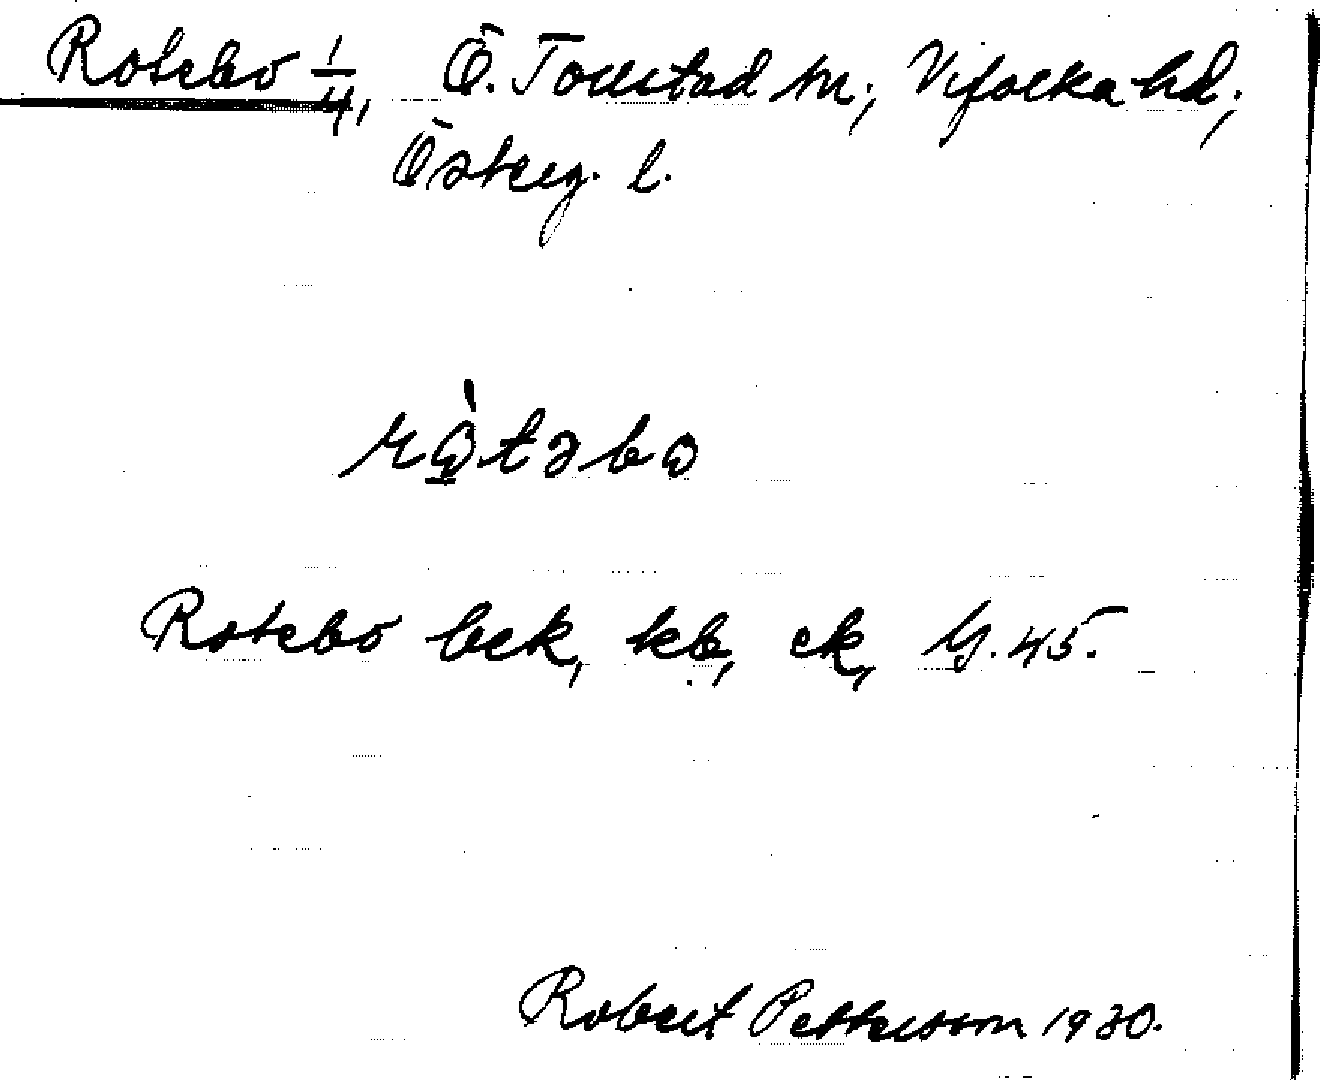 Rotebo 1/4, Ö. Tollstad sn, Vifolka hd,
Österg. l.
rò̱təbo
Rotebo bek, kb, ek, G. 45.
Robert Pettersson 1930.